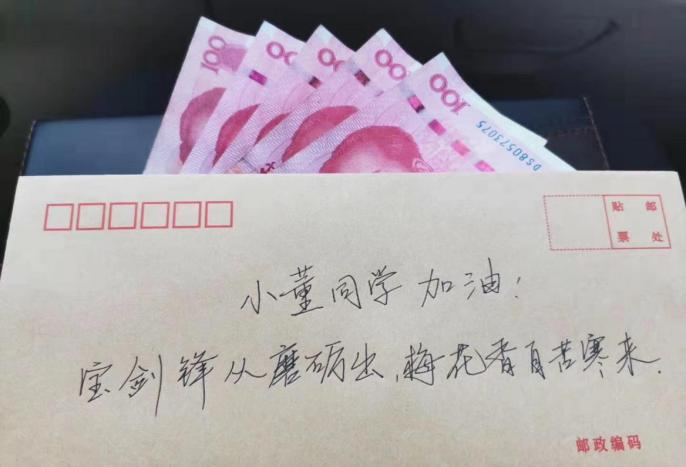 100
100
100
100
100
DS80573075
贴 邮
票 处
小董同学 加油!
宝剑锋从磨砺出,梅花香自苦寒来.
邮政编码